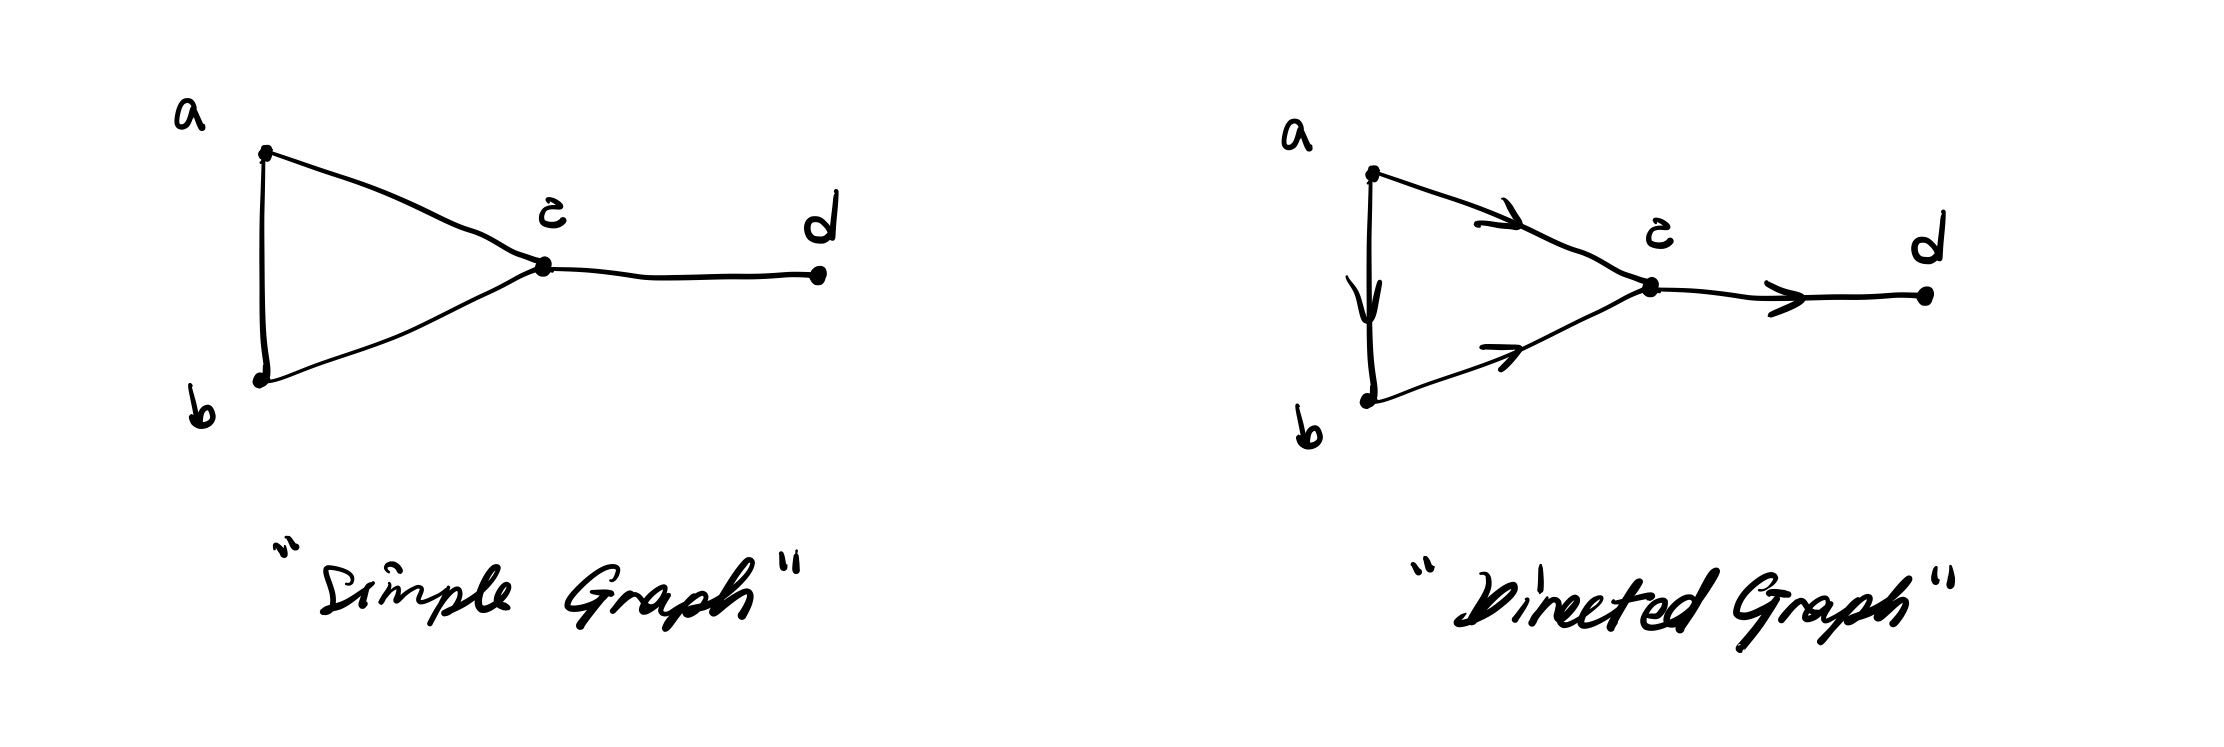 a
b
c
d
"Simple Graph"
a
b
c
d
"Directed Graph"